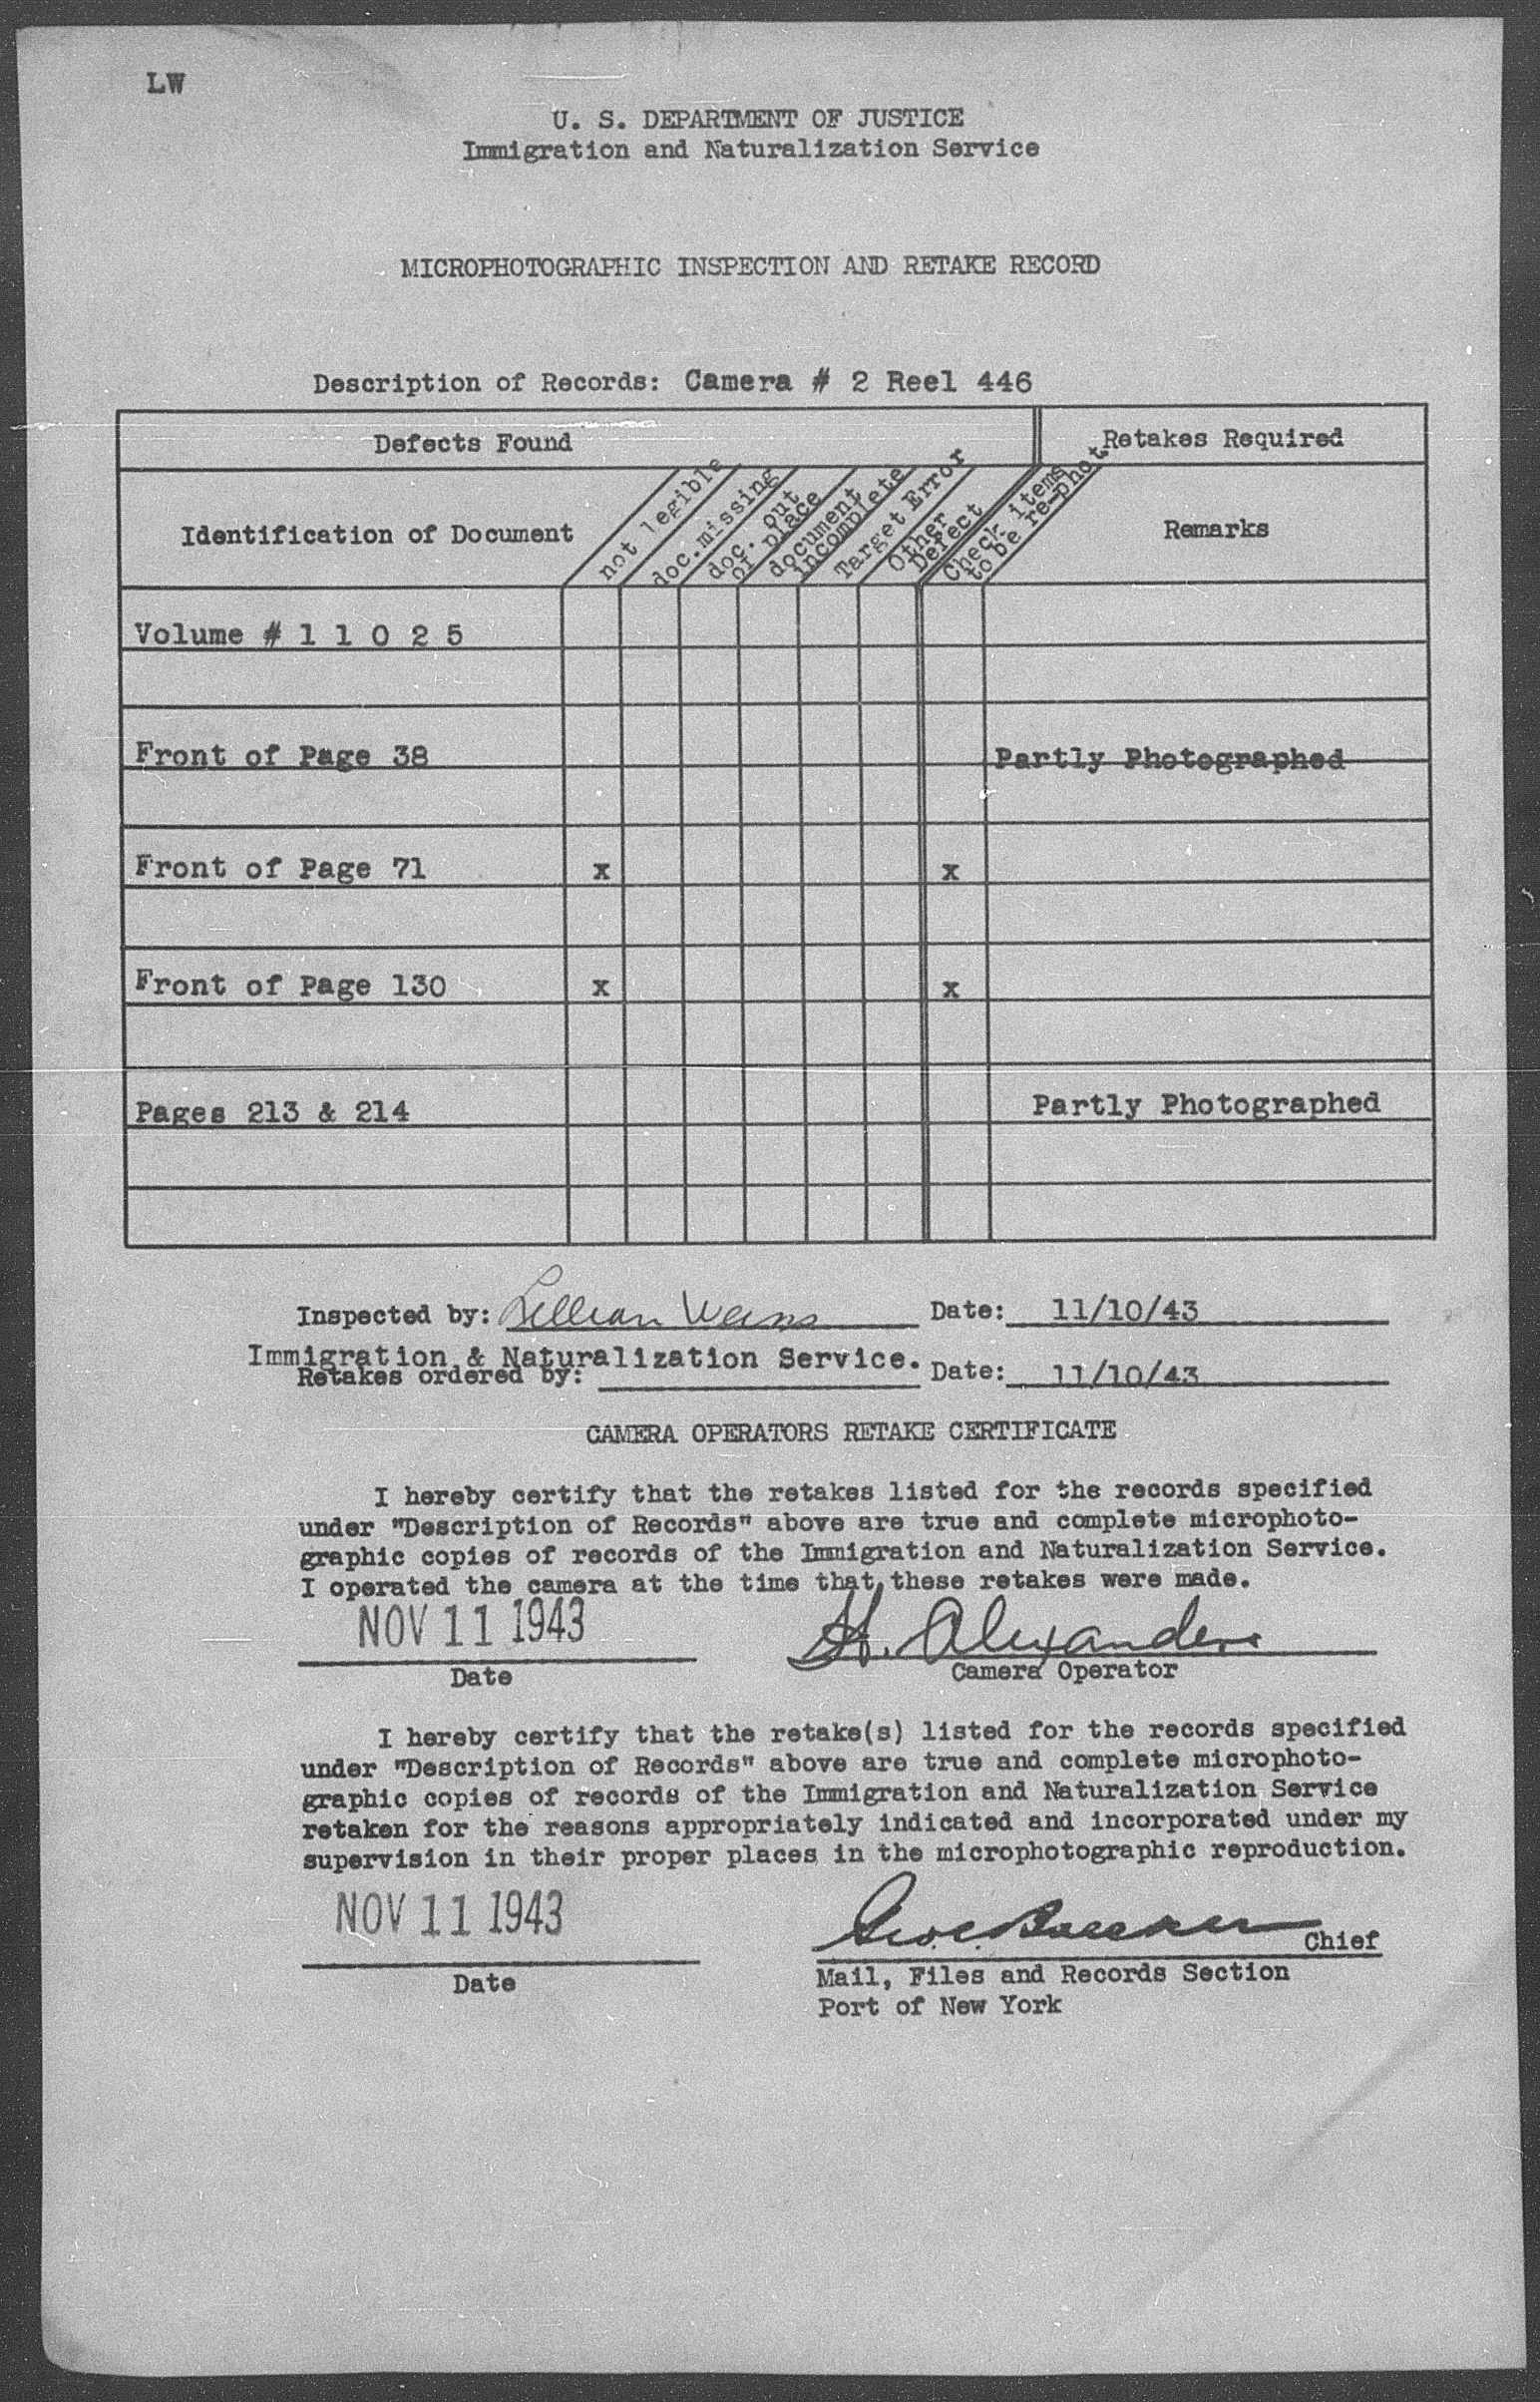 LW
U. S. DEPARTMENT OF JUSTICE
Immigration and Naturalization Service
MICROPHOTOGRAPHIC INSPECTION AND RETAKE RECORD
Description of Records: Camera # 2 Reel 446
Defects Found
Retakes Required
Identification of Document
not legible
doc.missing
doc. out
of place
document
incomplete
Target Error
Other
Defect
Check items
to be re-phot.
Remarks
Volume # 1 1 0 2 5
Front of Page 38 Partly Photographed
Front of Page 71 x x
Front of Page 130 x x
Pages 213 & 214 Partly Photographed
Inspected by: Lillian Weiss Date: 11/10/43
Immigration & Naturalization Service.
Retakes ordered by: Date: 11/10/43
CAMERA OPERATORS RETAKE CERTIFICATE
I hereby certify that the retakes listed for the records specified
under "Description of Records" above are true and complete microphoto-
graphic copies of records of the Immigration and Naturalization Service.
I operated the camera at the time that these retakes were made.
NOV 11 1943 H. Alexander
Date Camera Operator
I hereby certify that the retake(s) listed for the records specified
under "Description of Records" above are true and complete microphoto-
graphic copies of records of the Immigration and Naturalization Service
retaken for the reasons appropriately indicated and incorporated under my
supervision in their proper places in the microphotographic reproduction.
NOV 11 1943
Chief
Date Mail, Files and Records Section
Port of New York